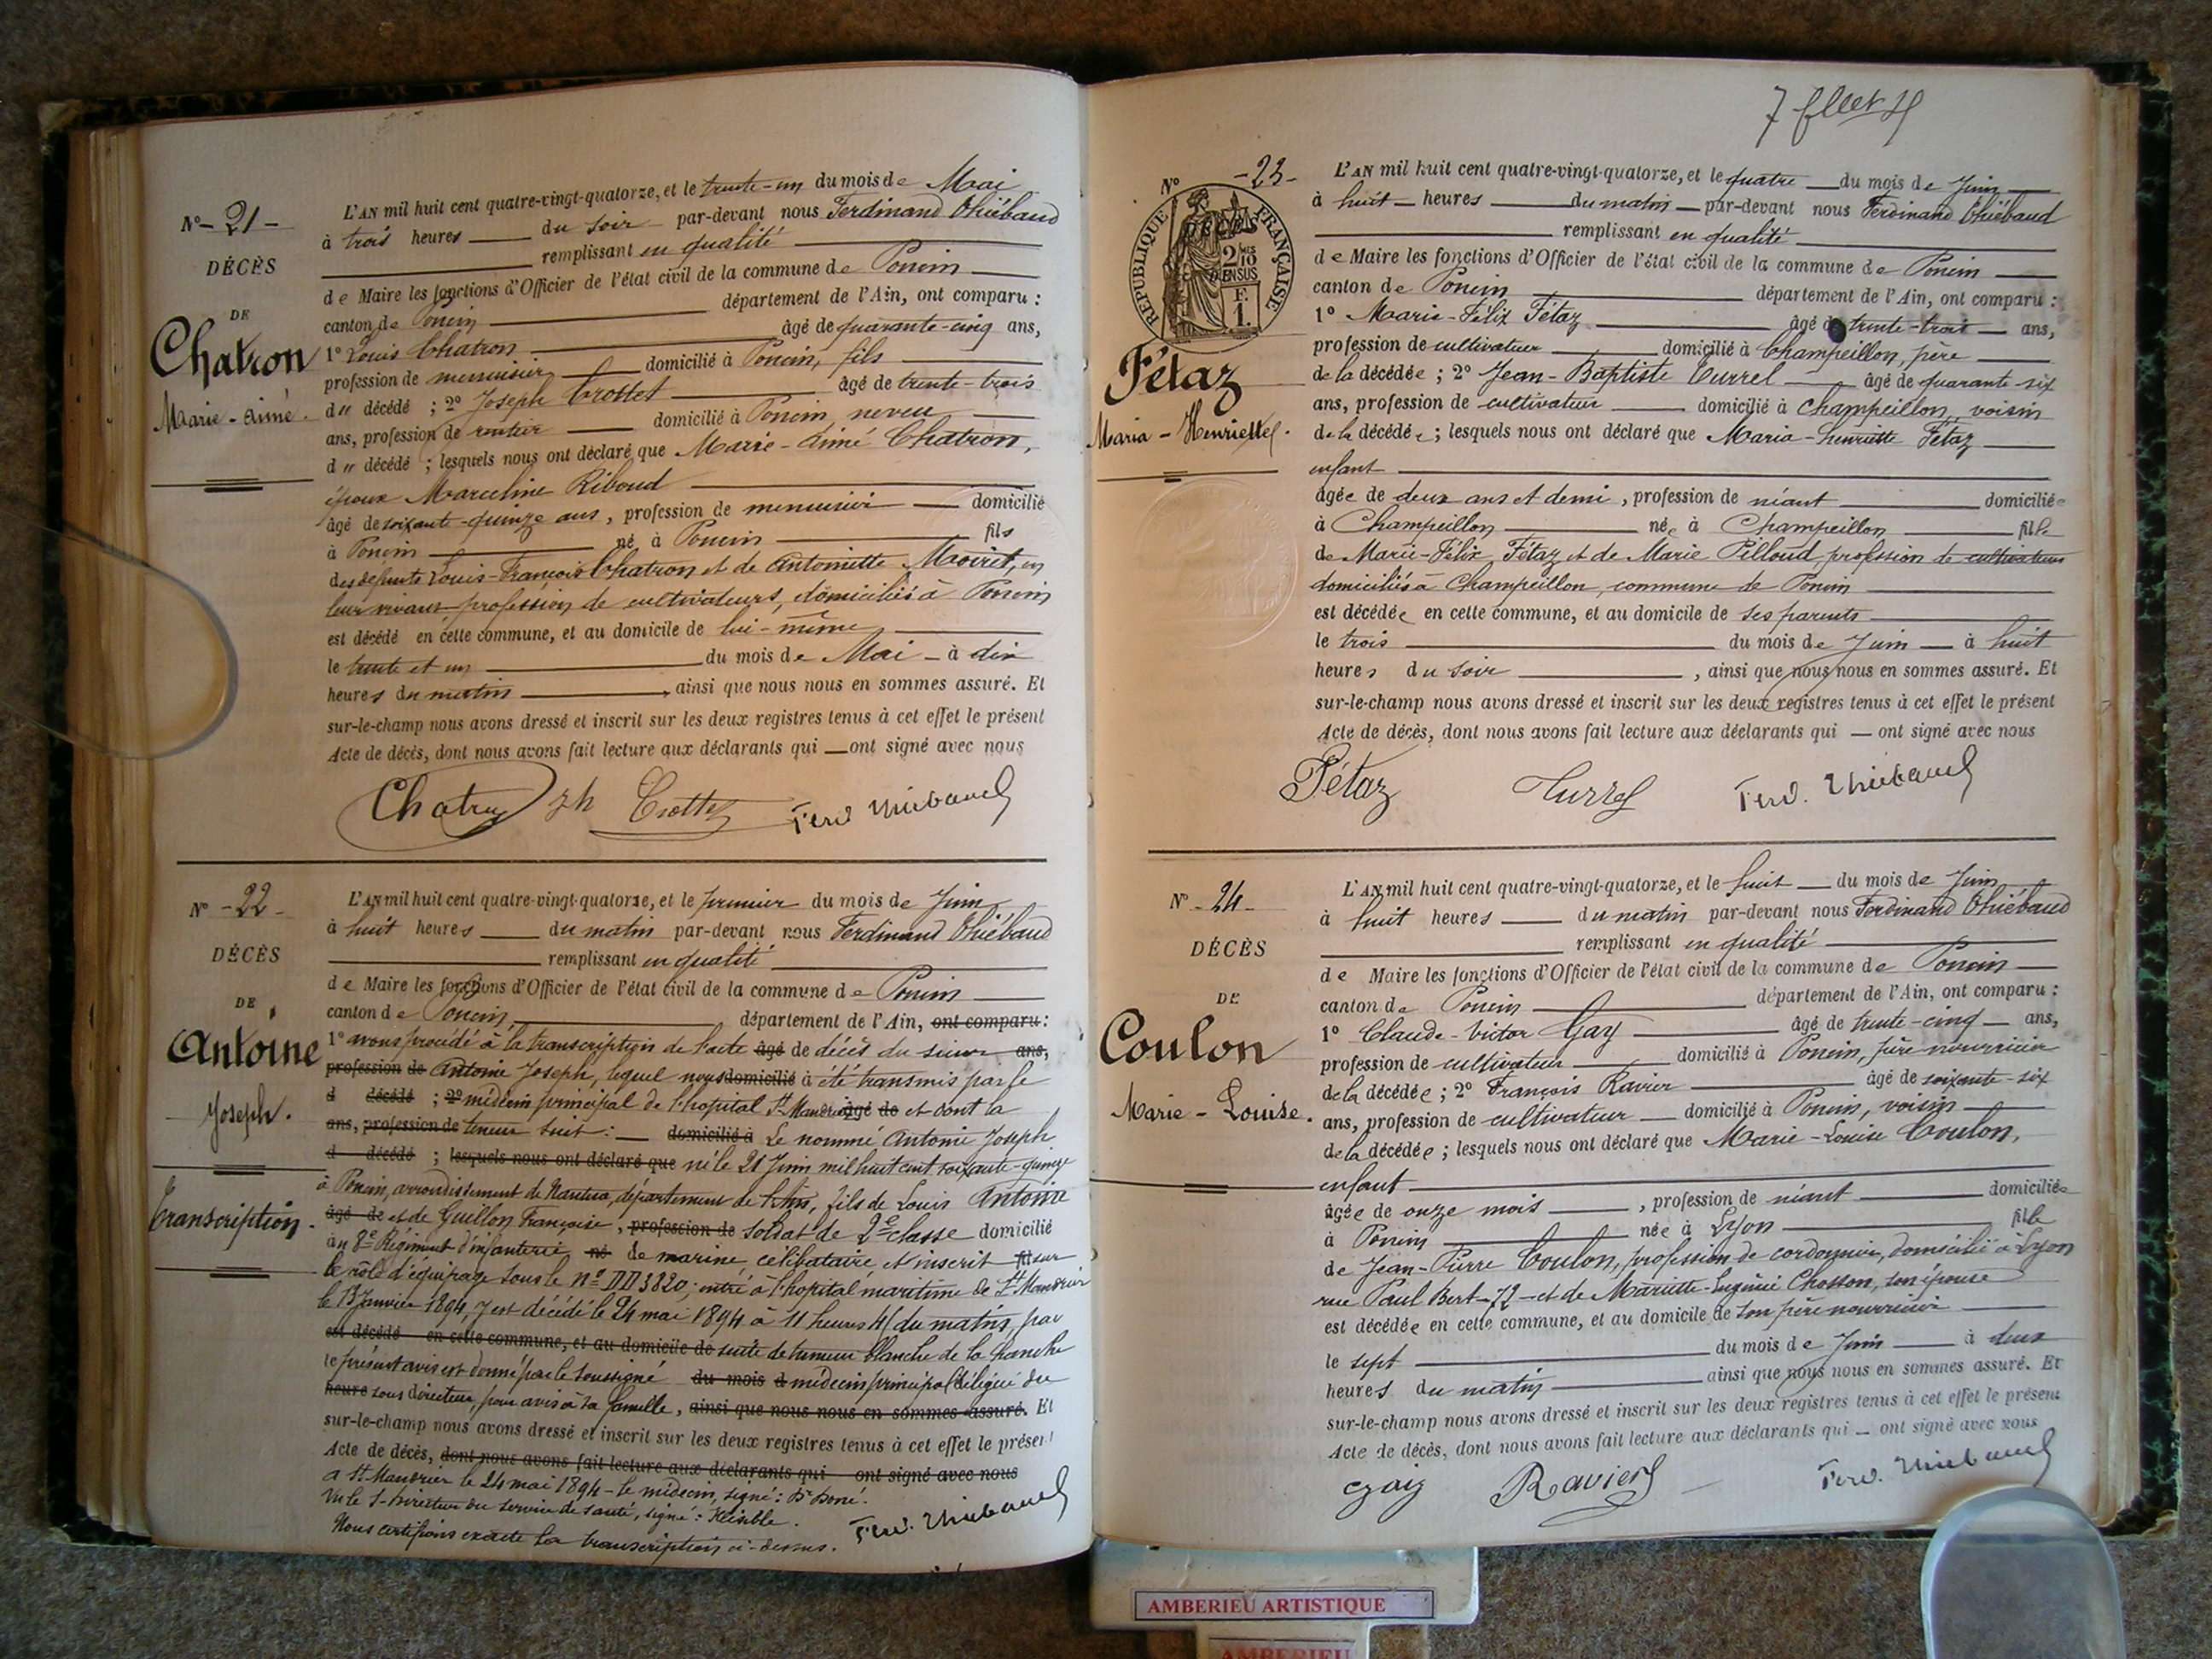 N° - 21 -
DÉCÈS
DE
Chatron
Marie - Aimé.
L'AN mil huit cent quatre-vingt-quatorze, et le trente-un du mois de Mai
à trois heures du soir par-devant nous Ferdinand Thiébaud
remplissant en qualité
de Maire les fonctions d'Officier de l'état civil de la commune de Poncin
canton de Poncin département de l'Ain, ont comparu :
1° Louis Chatron âgé de quarante-cinq ans,
profession de menuisier domicilié à Poncin, fils
du décédé ; 2° Joseph Crottet âgé de trente-trois
ans, profession de rentier domicilié à Poncin, neveu
du décédé ; lesquels nous ont déclaré que Marie-Aimé Chatron,
époux Marceline Riboud
âgé de soixante-quinze ans, profession de menuisier domicilié
à Poncin né à Poncin fils
des défunts Louis-François Chatron et de Antoinette Moiret, en
leur vivant profession de cultivateurs, domiciliés à Poncin
est décédé en cette commune, et au domicile de lui-même
le trente et un du mois de Mai - à dix
heures du matin, ainsi que nous nous en sommes assuré. Et
sur-le-champ nous avons dressé et inscrit sur les deux registres tenus à cet effet le présent
Acte de décès, dont nous avons fait lecture aux déclarants qui ont signé avec nous
Chatron Jh Crottet Ferd. Thiébaud
N° - 22 -
DÉCÈS
DE
Antoine
Joseph.
Transcription.
L'AN mil huit cent quatre-vingt-quatorze, et le premier du mois de Juin
à huit heures du matin par-devant nous Ferdinand Thiébaud
remplissant en qualité
de Maire les fonctions d'Officier de l'état civil de la commune de Poncin
canton de Poncin, département de l'Ain, ont comparu :
1° avons procédé à la transcription de l'acte âgé de décès du sieur ans,
profession de Antoine Joseph, lequel nous domicilié à été transmis par le
d décédé ; 2° médecin principal de l'hopital St Mandrier âgé de et dont la
ans, profession de teneur suit : domicilié à Le nommé Antoine Joseph
d décédé ; lesquels nous ont déclaré que né le 21 Juin mil huit cent soixante-quinze
à Poncin, arrondissement de Nantua, département de l'Ain, fils de Louis Antoine
âgé de et de Guillon Françoise, profession de soldat de 2e classe domicilié
au 8e Régiment d'infanterie né de marine, célibataire et inscrit fil sur
le rôle d'équipage sous le n° DD3820 ; entré à l'hopital maritime de St Mandrier
le 13 Janvier 1894, y est décédé le 24 mai 1894 à 11 heures 1/4 du matin, par
est décédé en cette commune, et au domicile de suite de tumeur blanche de la hanche
le présent avis est donné par le soussigné du mois d médecin principal délégué du
heure sous directeur, pour avis à la famille, ainsi que nous nous en sommes assuré. Et
sur-le-champ nous avons dressé et inscrit sur les deux registres tenus à cet effet le présent
Acte de décès, dont nous avons fait lecture aux déclarants qui ont signé avec nous
a St Mandrier le 24 mai 1894 - le médecin, signé :
Vu le S-Directeur du service de santé, signé : Illisible.
Nous certifions exacte la transcription ci-dessus. Ferd. Thiébaud
7
N° - 23 -
RÉPUBLIQUE FRANÇAISE
DÉCÈS
2/10 EN SUS
F.
1.
Fétaz
Maria - Henriette.
L'AN mil huit cent quatre-vingt-quatorze, et le quatre du mois de Juin
à huit heures du matin par-devant nous Ferdinand Thiébaud
remplissant en qualité
de Maire les fonctions d'Officier de l'état civil de la commune de Poncin
canton de Poncin département de l'Ain, ont comparu :
1° Marie-Félix Fétaz âgé de trente-trois ans,
profession de cultivateur domicilié à Champeillon, père
de la décédée ; 2° Jean-Baptiste Turrel âgé de quarante-six
ans, profession de cultivateur domicilié à Champeillon, voisin
de la décédée ; lesquels nous ont déclaré que Maria-Henriette Fétaz
enfant
âgée de deux ans et demi, profession de néant domiciliée
à Champeillon née à Champeillon fille
de Marie-Félix Fétaz et de Marie Pilloud, profession de cultivateurs
domiciliés à Champeillon, commune de Poncin
est décédée en cette commune, et au domicile de ses parents
le trois du mois de Juin à huit
heures du soir, ainsi que nous nous en sommes assuré. Et
sur-le-champ nous avons dressé et inscrit sur les deux registres tenus à cet effet le présent
Acte de décès, dont nous avons fait lecture aux déclarants qui ont signé avec nous
Fétaz Turrel Ferd. Thiébaud
N° - 24 -
DÉCÈS
DE
Coulon
Marie - Louise.
L'AN mil huit cent quatre-vingt-quatorze, et le huit du mois de Juin
à huit heures du matin par-devant nous Ferdinand Thiébaud
remplissant en qualité
de Maire les fonctions d'Officier de l'état civil de la commune de Poncin
canton de Poncin département de l'Ain, ont comparu :
1° Claude-Victor Gay âgé de trente-cinq ans,
profession de cultivateur domicilié à Poncin, père nourricier
de la décédée ; 2° François Ravier âgé de soixante-six
ans, profession de cultivateur domicilié à Poncin, voisin
de la décédée ; lesquels nous ont déclaré que Marie-Louise Coulon,
enfant
âgée de onze mois, profession de néant domiciliée
à Poncin née à Lyon fille
de Jean-Pierre Coulon, profession de cordonnier, domicilié à Lyon
rue Paul Bert - 72 - et de Mariette-Eugénie Chosson, son épouse
est décédée en cette commune, et au domicile de son père nourricier
le sept du mois de Juin à deux
heures du matin ainsi que nous nous en sommes assuré. Et
sur-le-champ nous avons dressé et inscrit sur les deux registres tenus à cet effet le présent
Acte de décès, dont nous avons fait lecture aux déclarants qui ont signé avec nous
Ravier Ferd. Thiébaud
AMBERIEU ARTISTIQUE
AMBERIEU